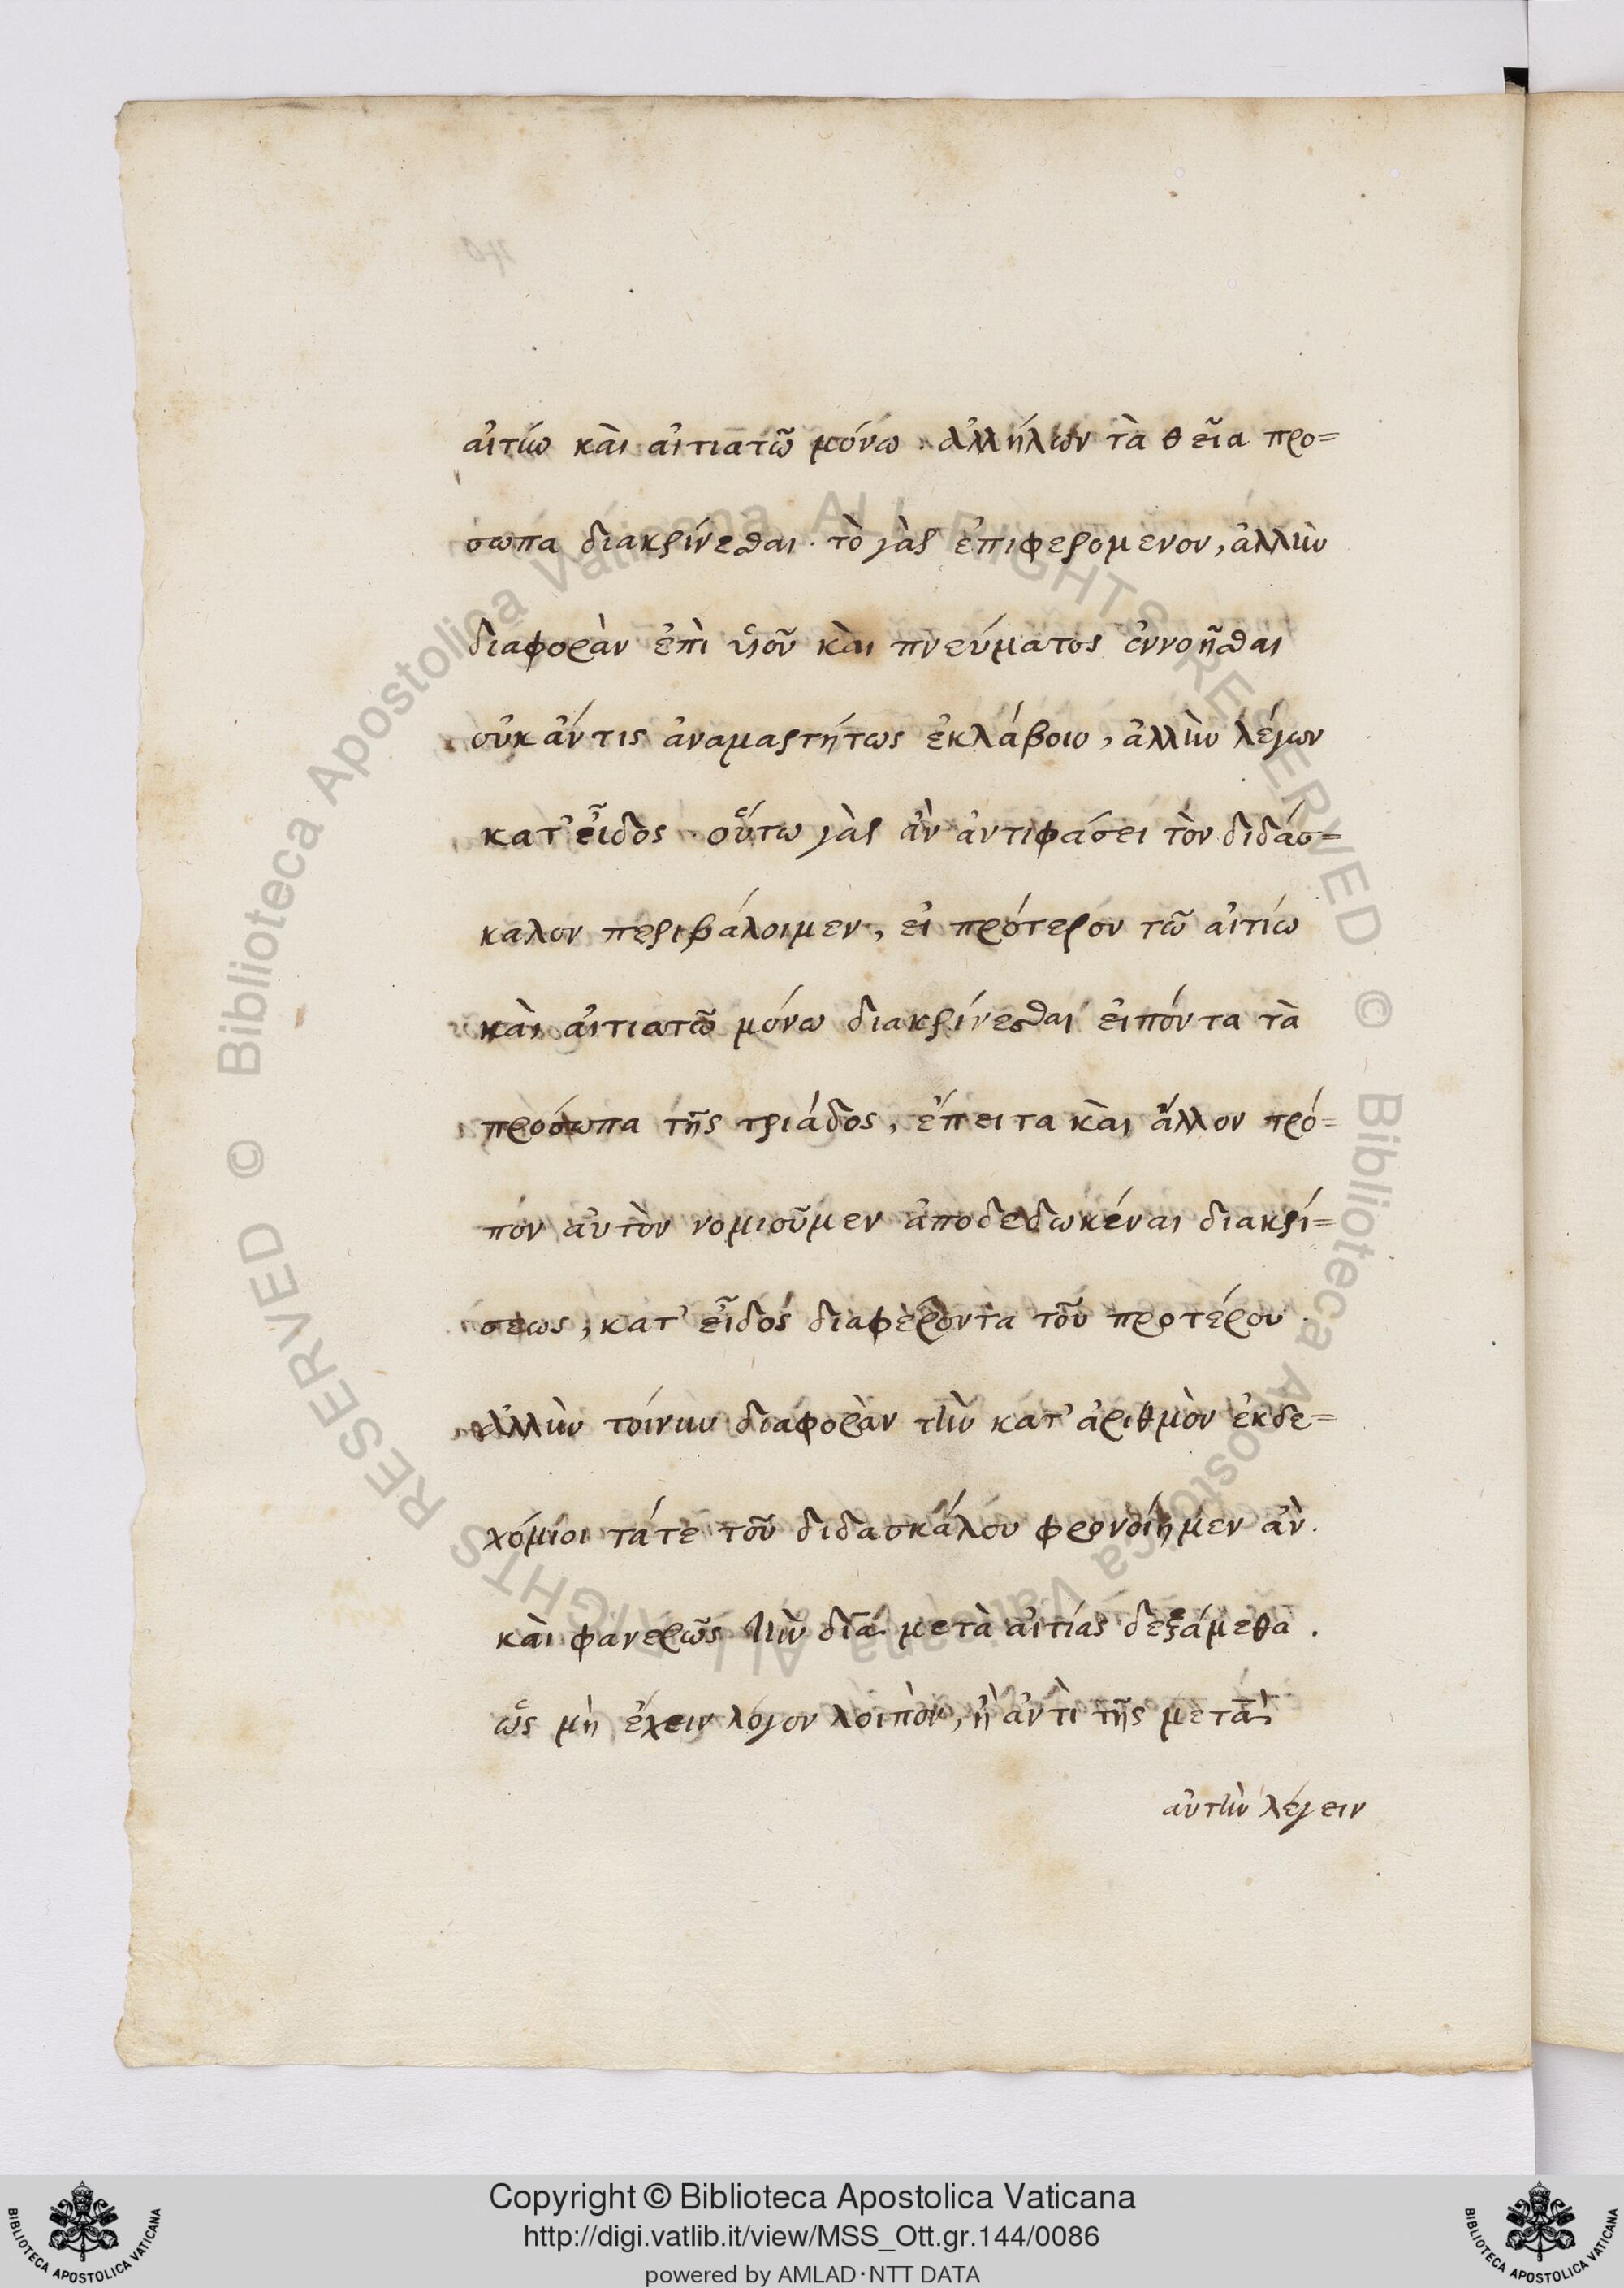 αἰτίω καὶ αἰτιατῶ μόνω ἀλλήλων τὰ θεῖα προ=
σωπα διακρίνεσθαι· τὸ γὰρ ἐπιφερομενον, ἀλλὴν
διαφορὰν ἐπὶ ὑιοῦ καὶ πνεύματος ἐννοῆσθαι
οὐκ ἄντις ἀναμαρτήτως ἐκλάβοιο, ἀλλὴν λέγων
κατ' εἶδος· οὕτω γὰρ ἂν ἀντιφάσει τὸν διδάσ=
καλον περιβάλοιμεν, εἰ πρότερον τῶ αἰτίω
καὶ αἰτιατῶ μόνω διακρίνεσθαι εἰπόντα τὰ
πρόσωπα τῆς τριάδος, ἔπειτα καὶ ἄλλον πρό=
πον αὐτὸν νομιοῦμεν ἀποδεδωκέναι διακρί=
σεως, κατ' εἶδος διαφέροντα τοῦ προτέρου.
ἀλλὴν τοίνυν διαφορὰν τὴν κατ' ἀριθμὸν ἐκδε=
χόμιοι τάτε τοῦ διδασκάλου φρονοίημεν ἂν.
καὶ φανερῶς τὴν διὰ μετὰ αἰτίας δεξάμεθα.
ὡς μὴ ἔχειν λόγον λοιπὸν, ἢ ἀντὶ τῆς μετὰ
αὐτὴν λέγειν
Copyright © Biblioteca Apostolica Vaticana
http://digi.vatlib.it/view/MSS_Ott.gr.144/0086
powered by AMLAD·NTT DATA
BIBLIOTECA APOSTOLICA VATICANA
BIBLIOTECA APOSTOLICA VATICANA
© Biblioteca Apostolica Vaticana ALL RIGHTS RESERVED © Biblioteca Apostolica Vaticana ALL RIGHTS RESERVED